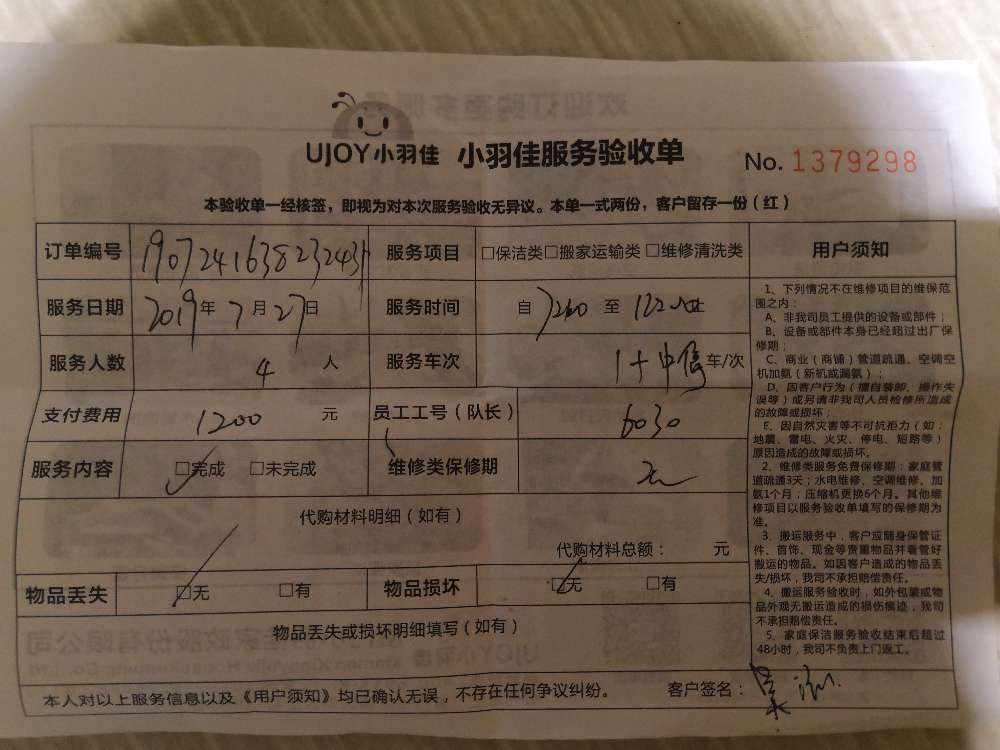 UJOY小羽佳 小羽佳服务验收单 No. 1379298
本验收单一经核签，即视为对本次服务验收无异议。本单一式两份，客户留存一份（红）
订单编号 服务项目 □保洁类□搬家运输类□维修清洗类
服务日期 2019年7月27日 服务时间 自 至
服务人数 4 人 服务车次 车/次
支付费用 1200 元 员工工号（队长） 6030
服务内容 □完成 □未完成 维修类保修期 无
代购材料明细（如有）
代购材料总额： 元
物品丢失 □无 □有 物品损坏 □无 □有
物品丢失或损坏明细填写（如有）
本人对以上服务信息以及《用户须知》均已确认无误，不存在任何争议纠纷。 客户签名：
用户须知
1、下列情况不在维修项目的维保范
围之内：
A、非我司员工提供的设备或部件；
B、设备或部件本身已经超过出厂保
修期；
C、商业（商铺）管道疏通、空调空
机加氨（新机或漏氨）；
D、因客户行为（擅自装卸、操作失
误等）或另请非我司人员检修所造成
的故障或损坏；
E、因自然灾害等不可抗拒力（如：
地震、雷电、火灾、停电、短路等）
原因造成的故障或损坏。
2、维修类服务免费保修期：家庭管
道疏通3天；水电维修、空调维修、加
氨1个月；压缩机更换6个月。其他维
修项目以服务验收单填写的保修期为
准。
3、搬运服务中，客户应随身保管证
件、首饰、现金等贵重物品并看管好
搬运的物品。如因客户造成的物品丢
失/损坏，我司不承担赔偿责任。
4、搬运服务验收时，如外包装或物
品外观无搬运造成的损伤痕迹，我司
不承担赔偿责任。
5、家庭保洁服务验收结束后超过
48小时，我司不负责上门返工。